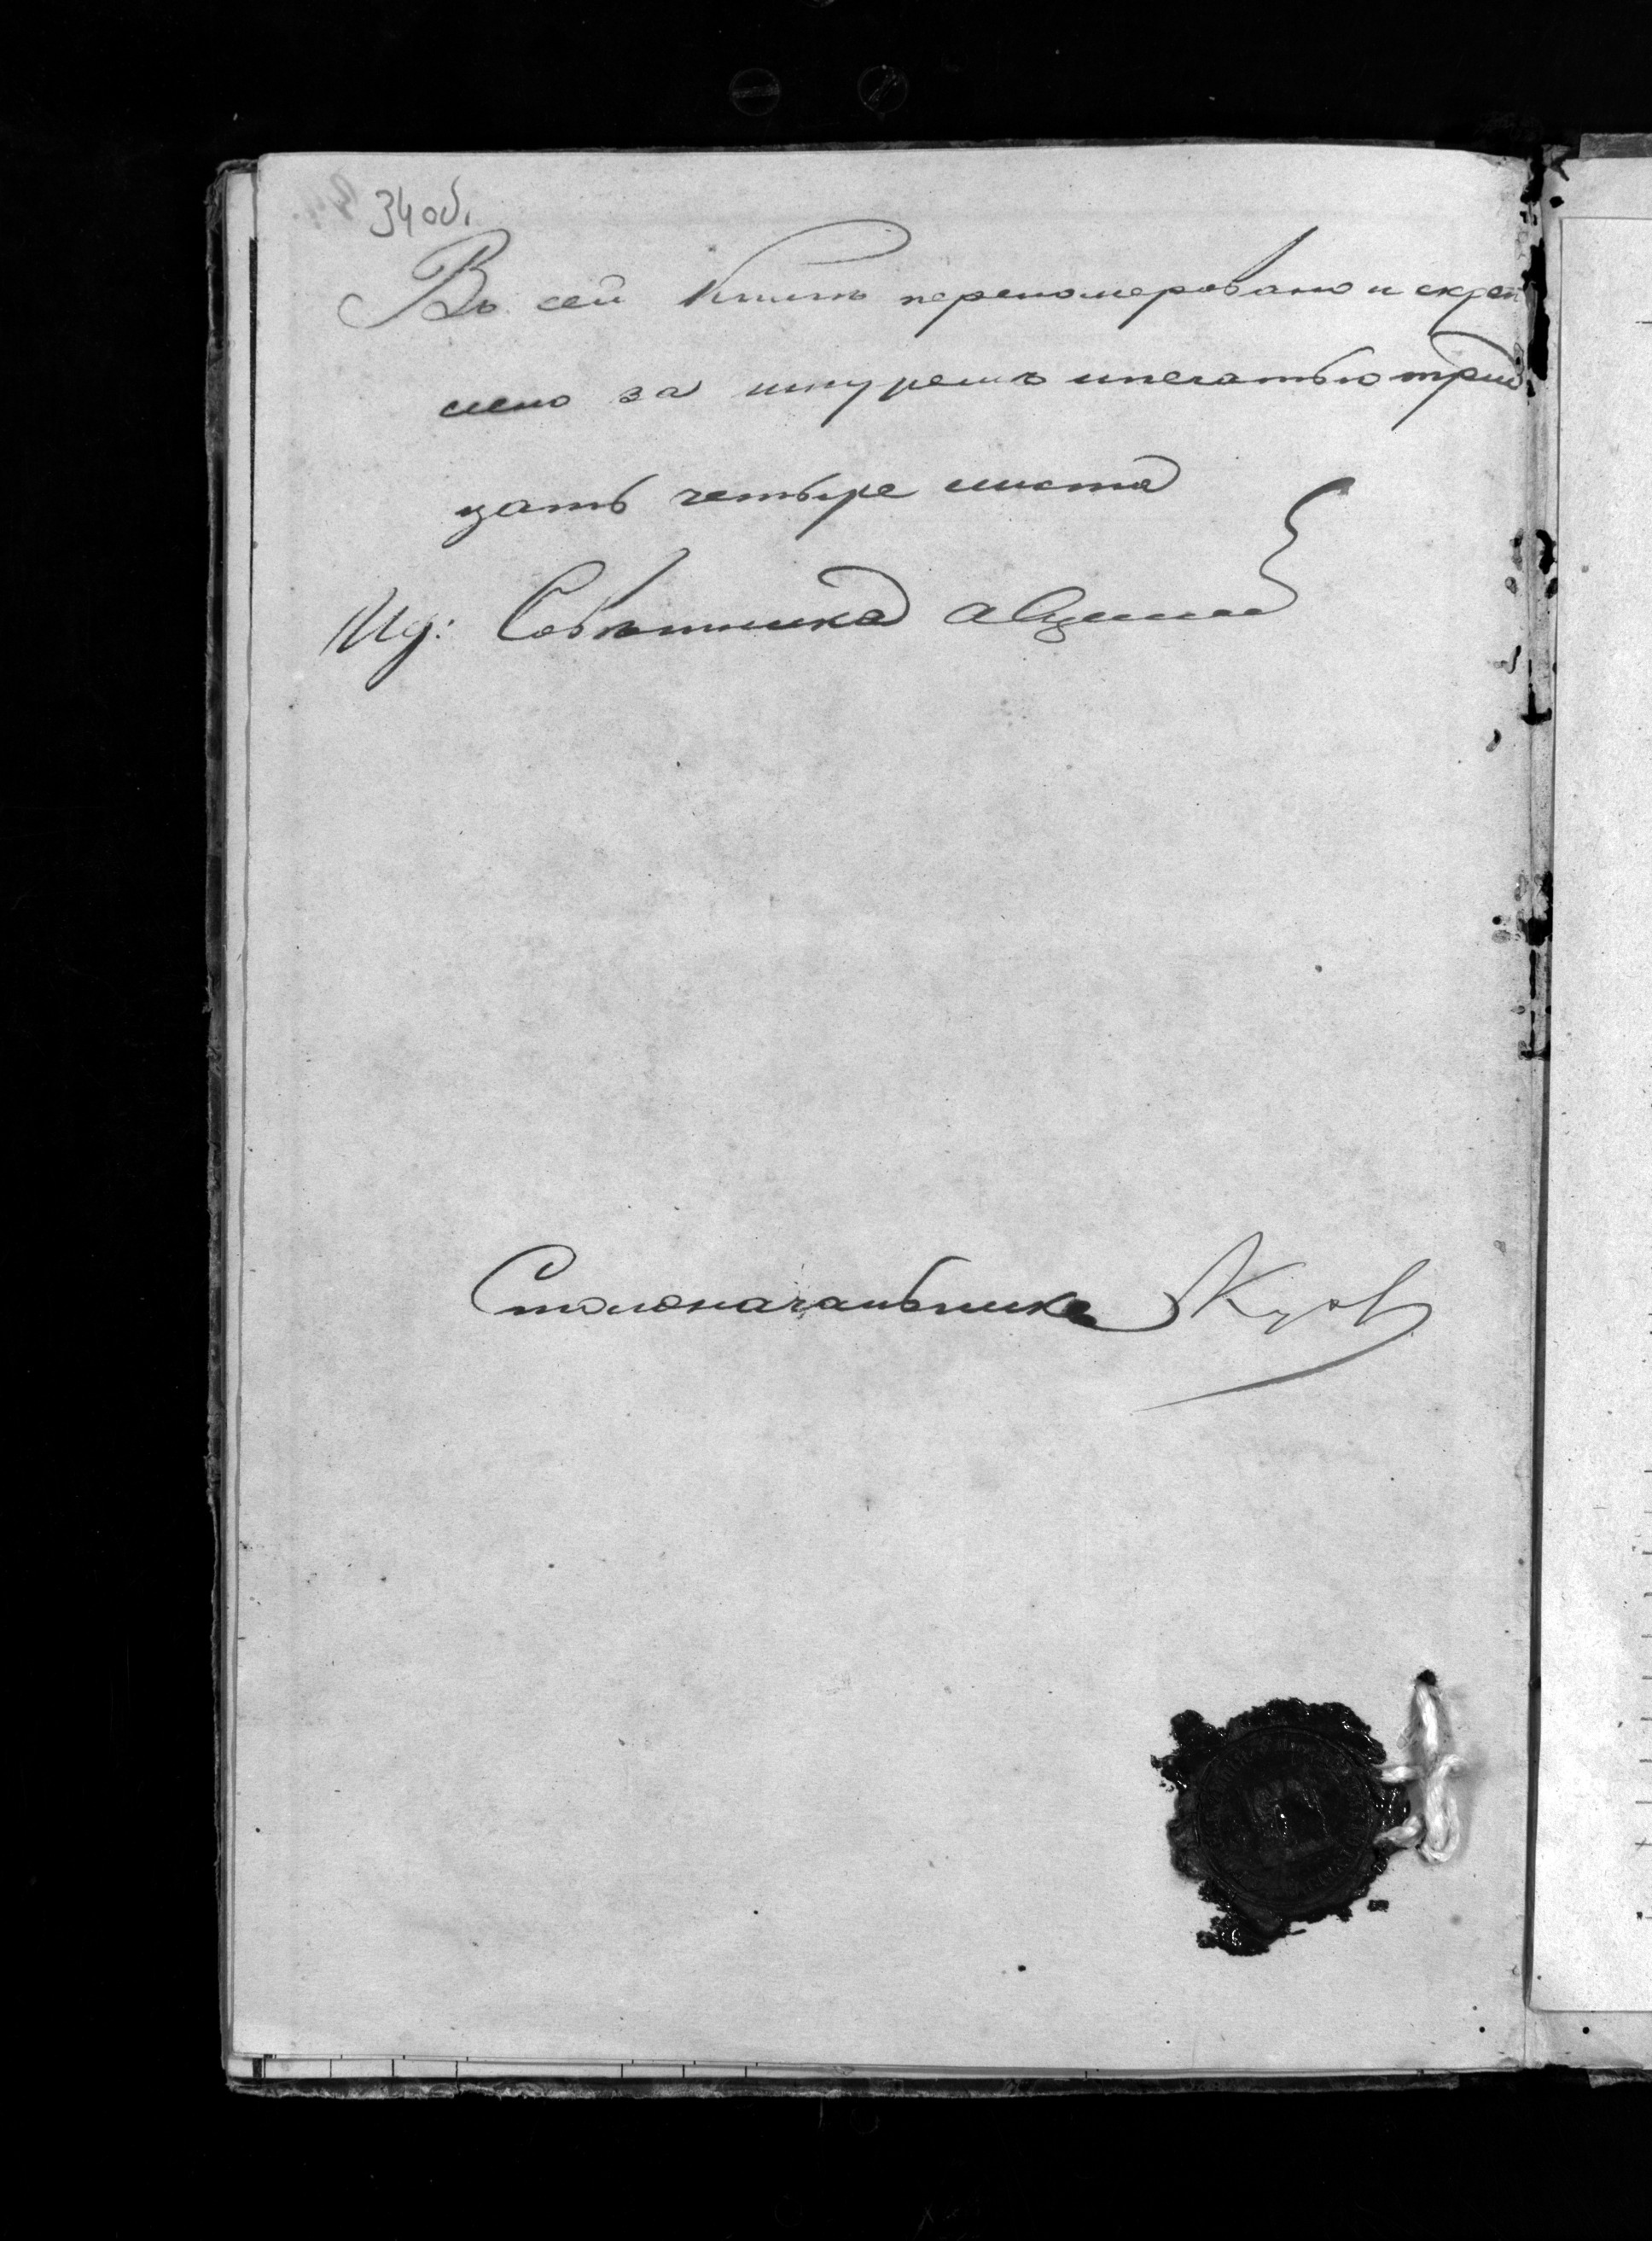 34 об.
Въ сей Книгѣ перенумеровано и скреп
лено за шнуромъ и печатью трид
цать четыре листа
Ид: Совѣтника
Столоначальника